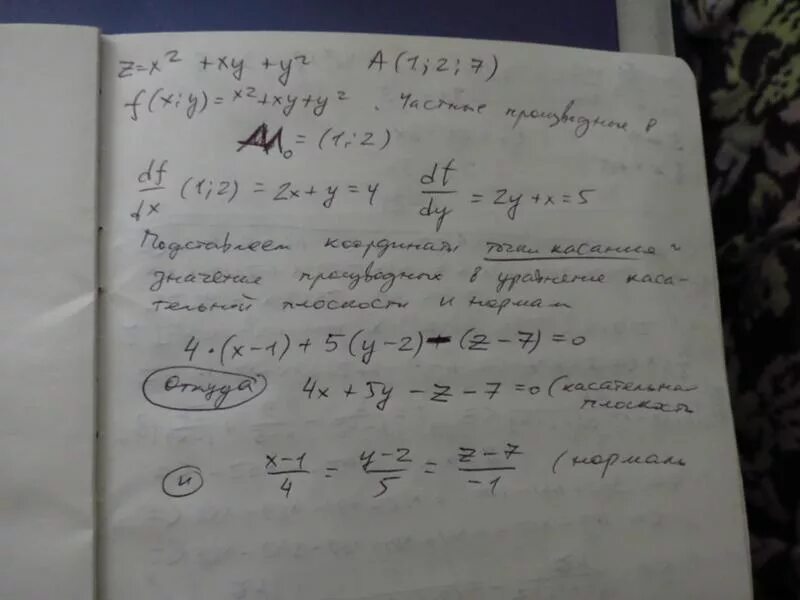 z=x² +xy +y² A(1;2;7)
f(x;y)=x²+xy+y². Частные производные в
M₀=(1;2)
df/dx (1;2) = 2x+y=4 df/dy = 2y+x=5
Подставляем координаты точки касания и
значения производных в уравнение каса-
тельной плоскости и нормали
4·(x-1)+5(y-2)-(z-7)=0
Откуда 4x+5y-z-7=0 (касательная
плоскость
и (x-1)/4 = (y-2)/5 = (z-7)/-1 (нормаль